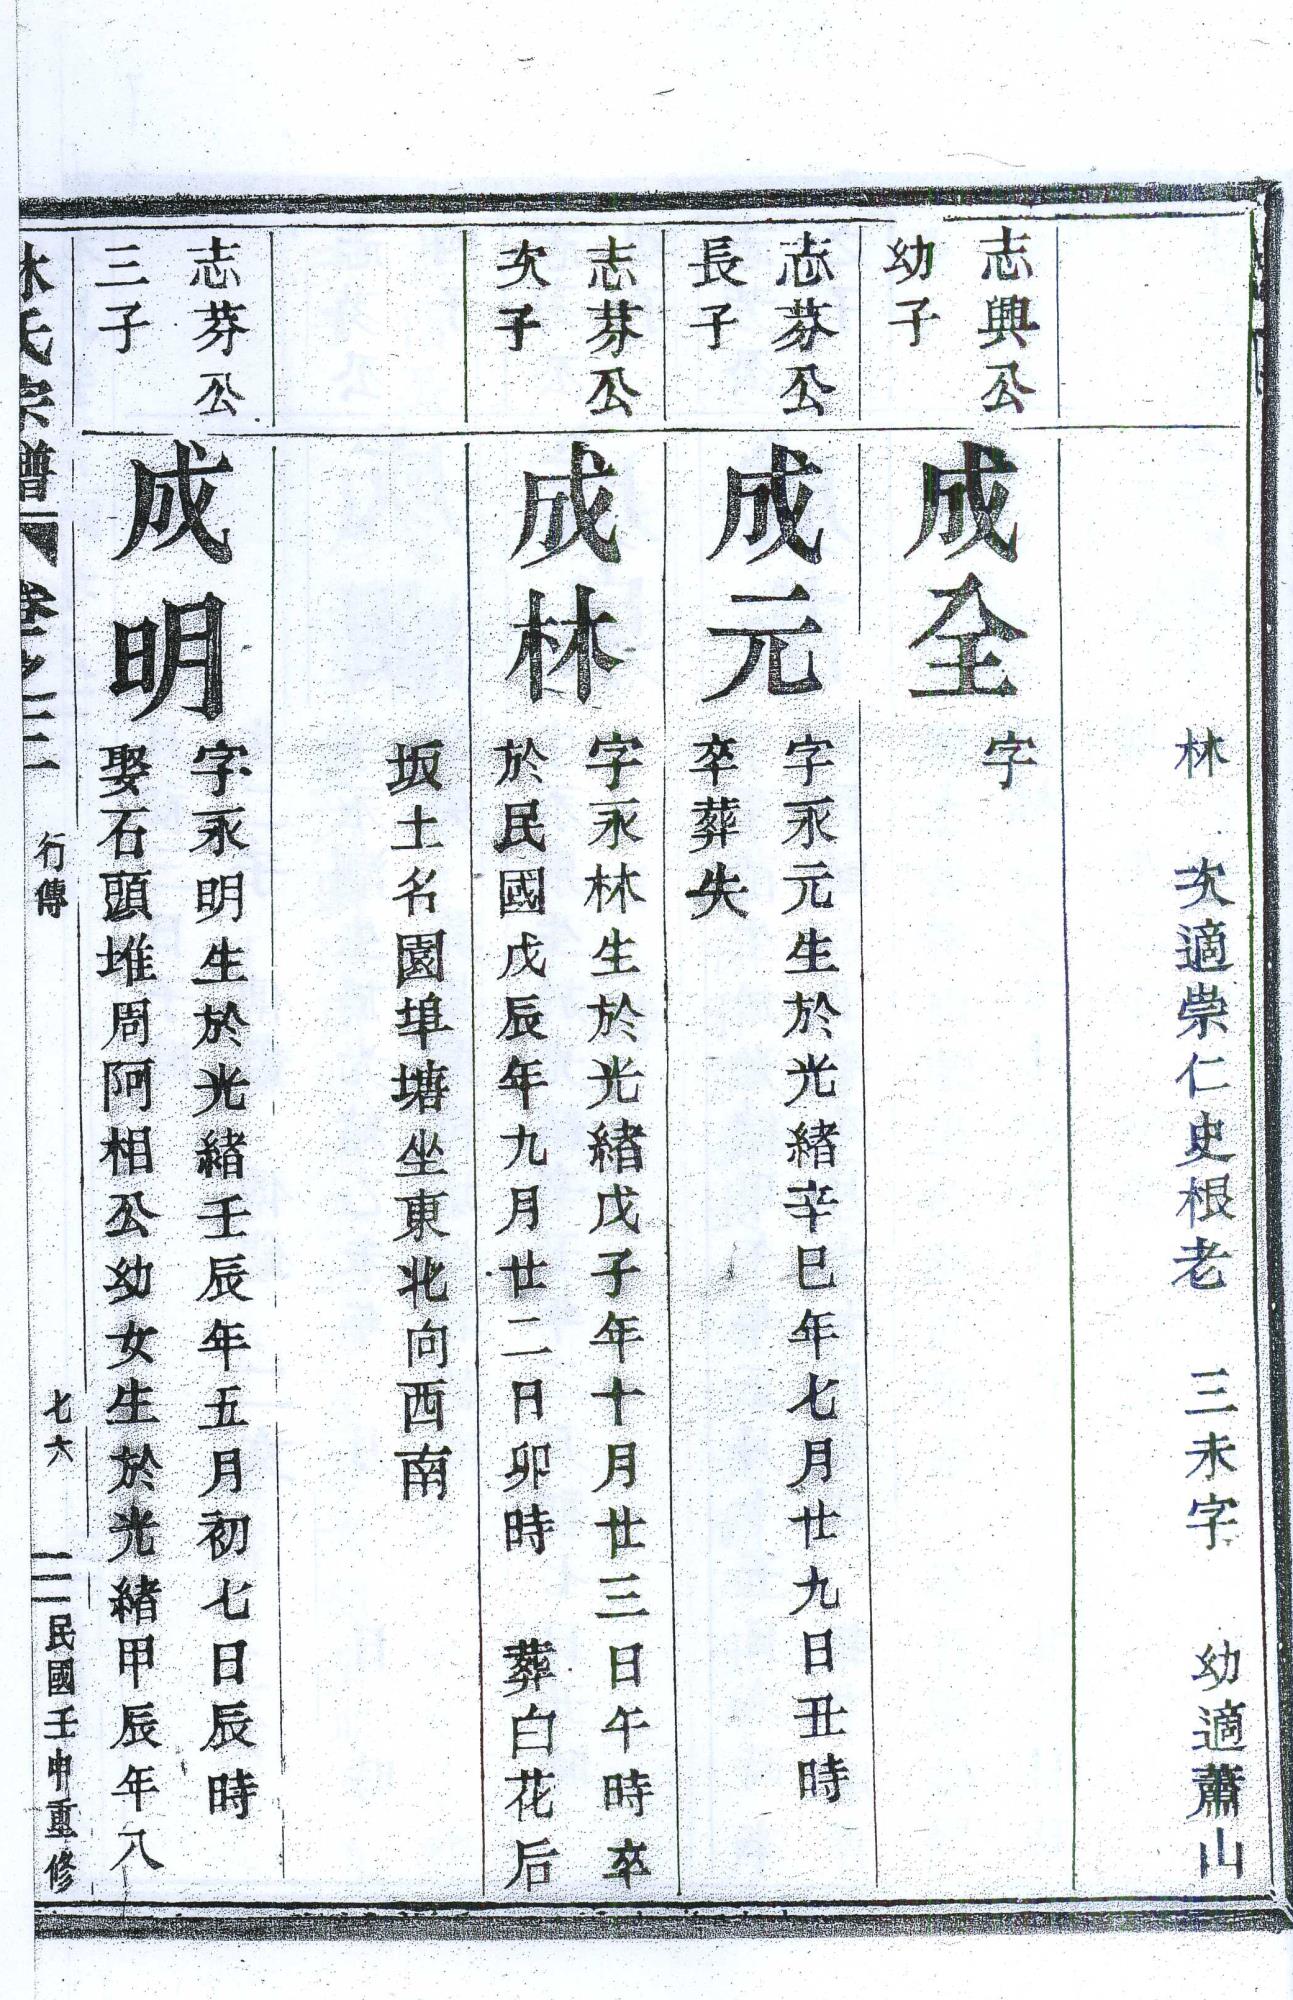 林　次適崇仁史根老　三未字　幼適蕭山
志興公
幼子
成全
字
志芬公
長子
成元
字永元生於光緒辛巳年七月廿九日丑時
卒葬失
志芬公
次子
成林
字永林生於光緒戊子年十月廿三日午時卒
於民國戊辰年九月廿二日卯時　葬白花后
坂土名園埠塘坐東北向西南
志芬公
三子
成明
字永明生於光緒壬辰年五月初七日辰時
娶石頭堆周阿相公幼女生於光緒甲辰年八
林氏宗譜　卷之二　行傳　七六　民國壬申重修